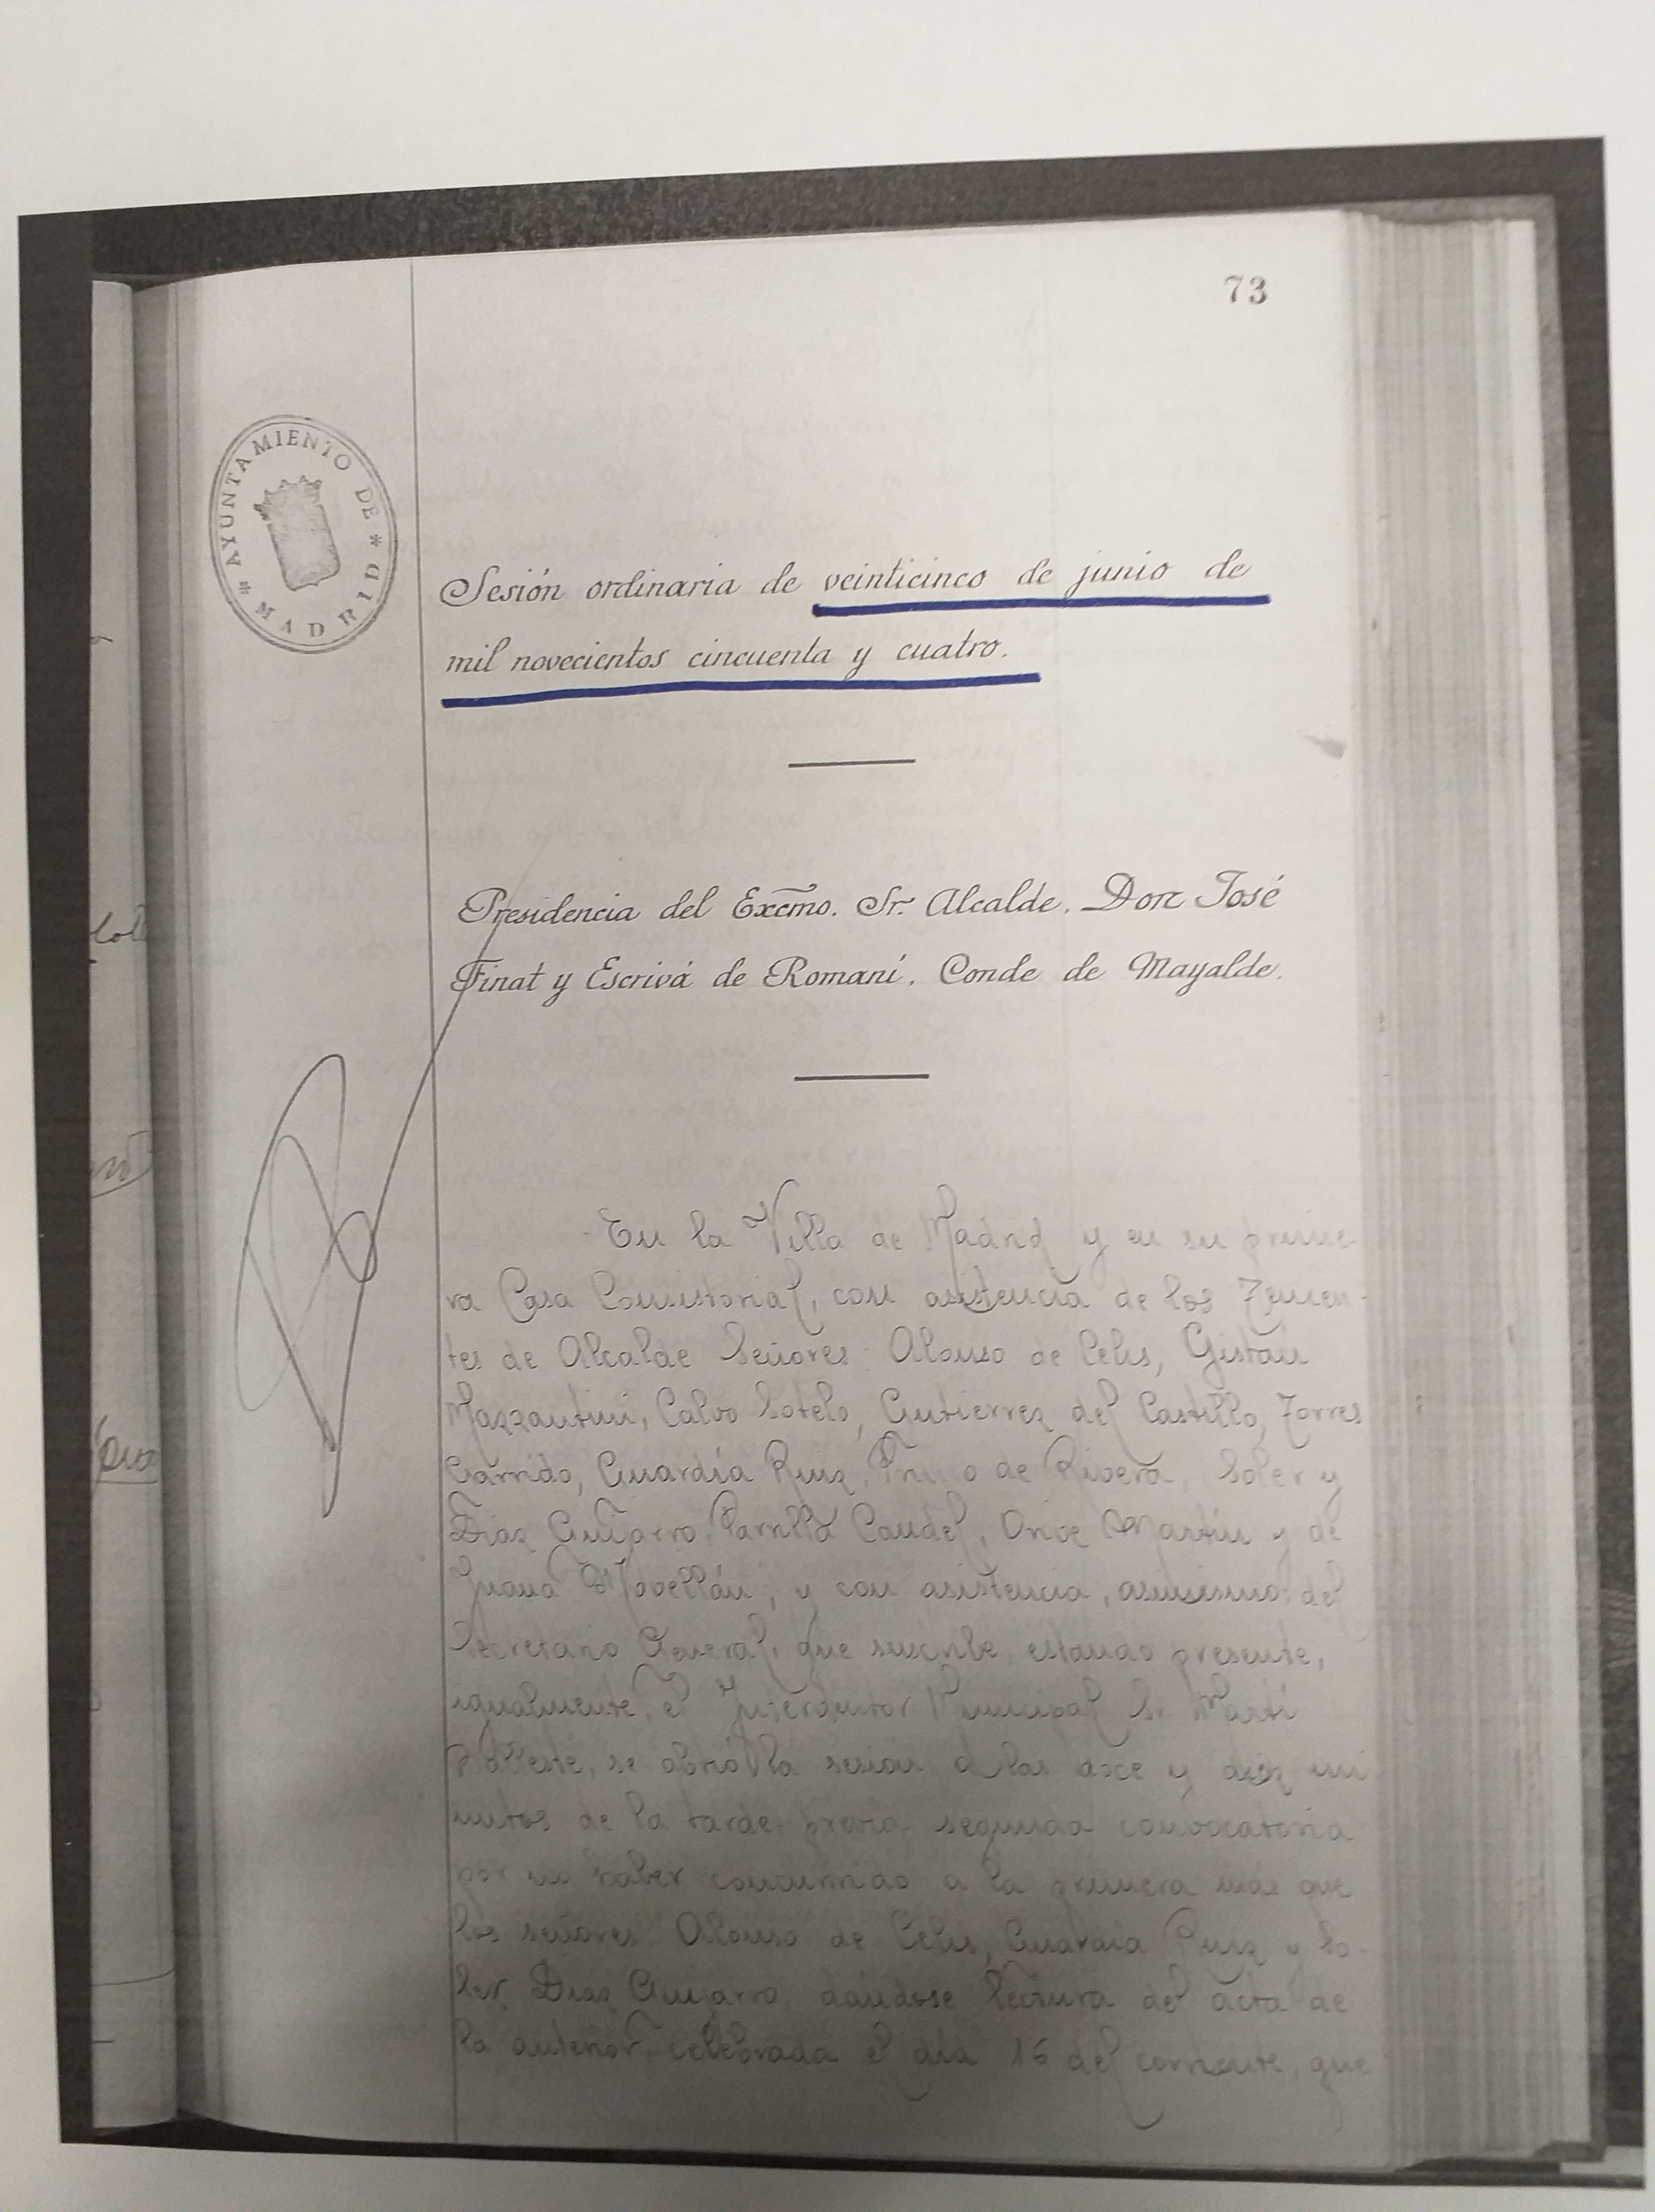 73
AYUNTAMIENTO DE
* MADRID *
Sesión ordinaria de veinticinco de junio de
mil novecientos cincuenta y cuatro.
Presidencia del Excmo. Sr. Alcalde, Don José
Finat y Escrivá de Romaní, Conde de Mayalde.
En la Villa de Madrid y en su prime-
ra Casa Consistorial, con asistencia de los Tenien-
tes de Alcalde Señores: Alonso de Celis, Gistau
Mazzantini, Calvo Sotelo, Gutierrez del Castillo, Torres
Garrido, Guardia Ruiz, Primo de Rivera, Soler y
Diaz Guijarro, Parrilla Candel, Martin y de
Novellán; y con asistencia, asimismo, del
Secretario General, que suscribe, estando presente,
igualmente, el Interventor Municipal Sr. Martí
se abrió la sesion a las doce y diez mi
nutos de la tarde, previa segunda convocatoria
por no haber concurrido a la primera más que
los señores: Alonso de Celis, Guardia Ruiz y So-
ler Diaz Guijarro, dándose lectura del acta de
la anterior, celebrada el día 16 del corriente, que